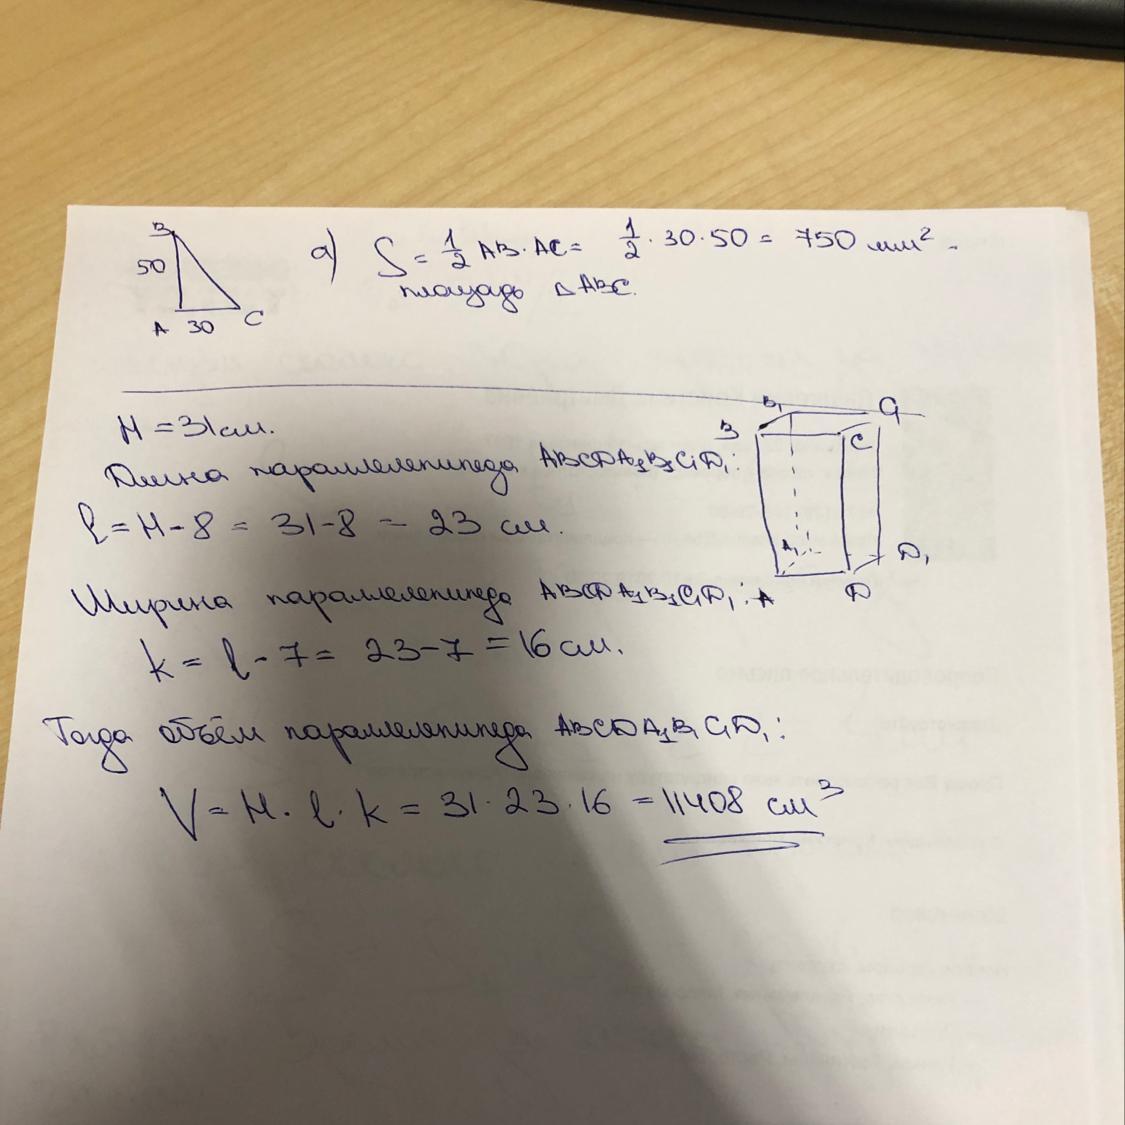 B
50
A 30 C
а) S = 1/2 AB · AC = 1/2 · 30 · 50 = 750 мм² -
площадь △ ABC.
H = 31 см.
Длина параллелепипеда ABCDA₁B₁C₁D₁:
l = H - 8 = 31 - 8 = 23 см.
Ширина параллелепипеда ABCDA₁B₁C₁D₁:
k = l - 7 = 23 - 7 = 16 см.
Тогда объём параллелепипеда ABCDA₁B₁C₁D₁:
V = H · l · k = 31 · 23 · 16 = 11408 см³
B₁ C₁
B C
A₁ D₁
A D